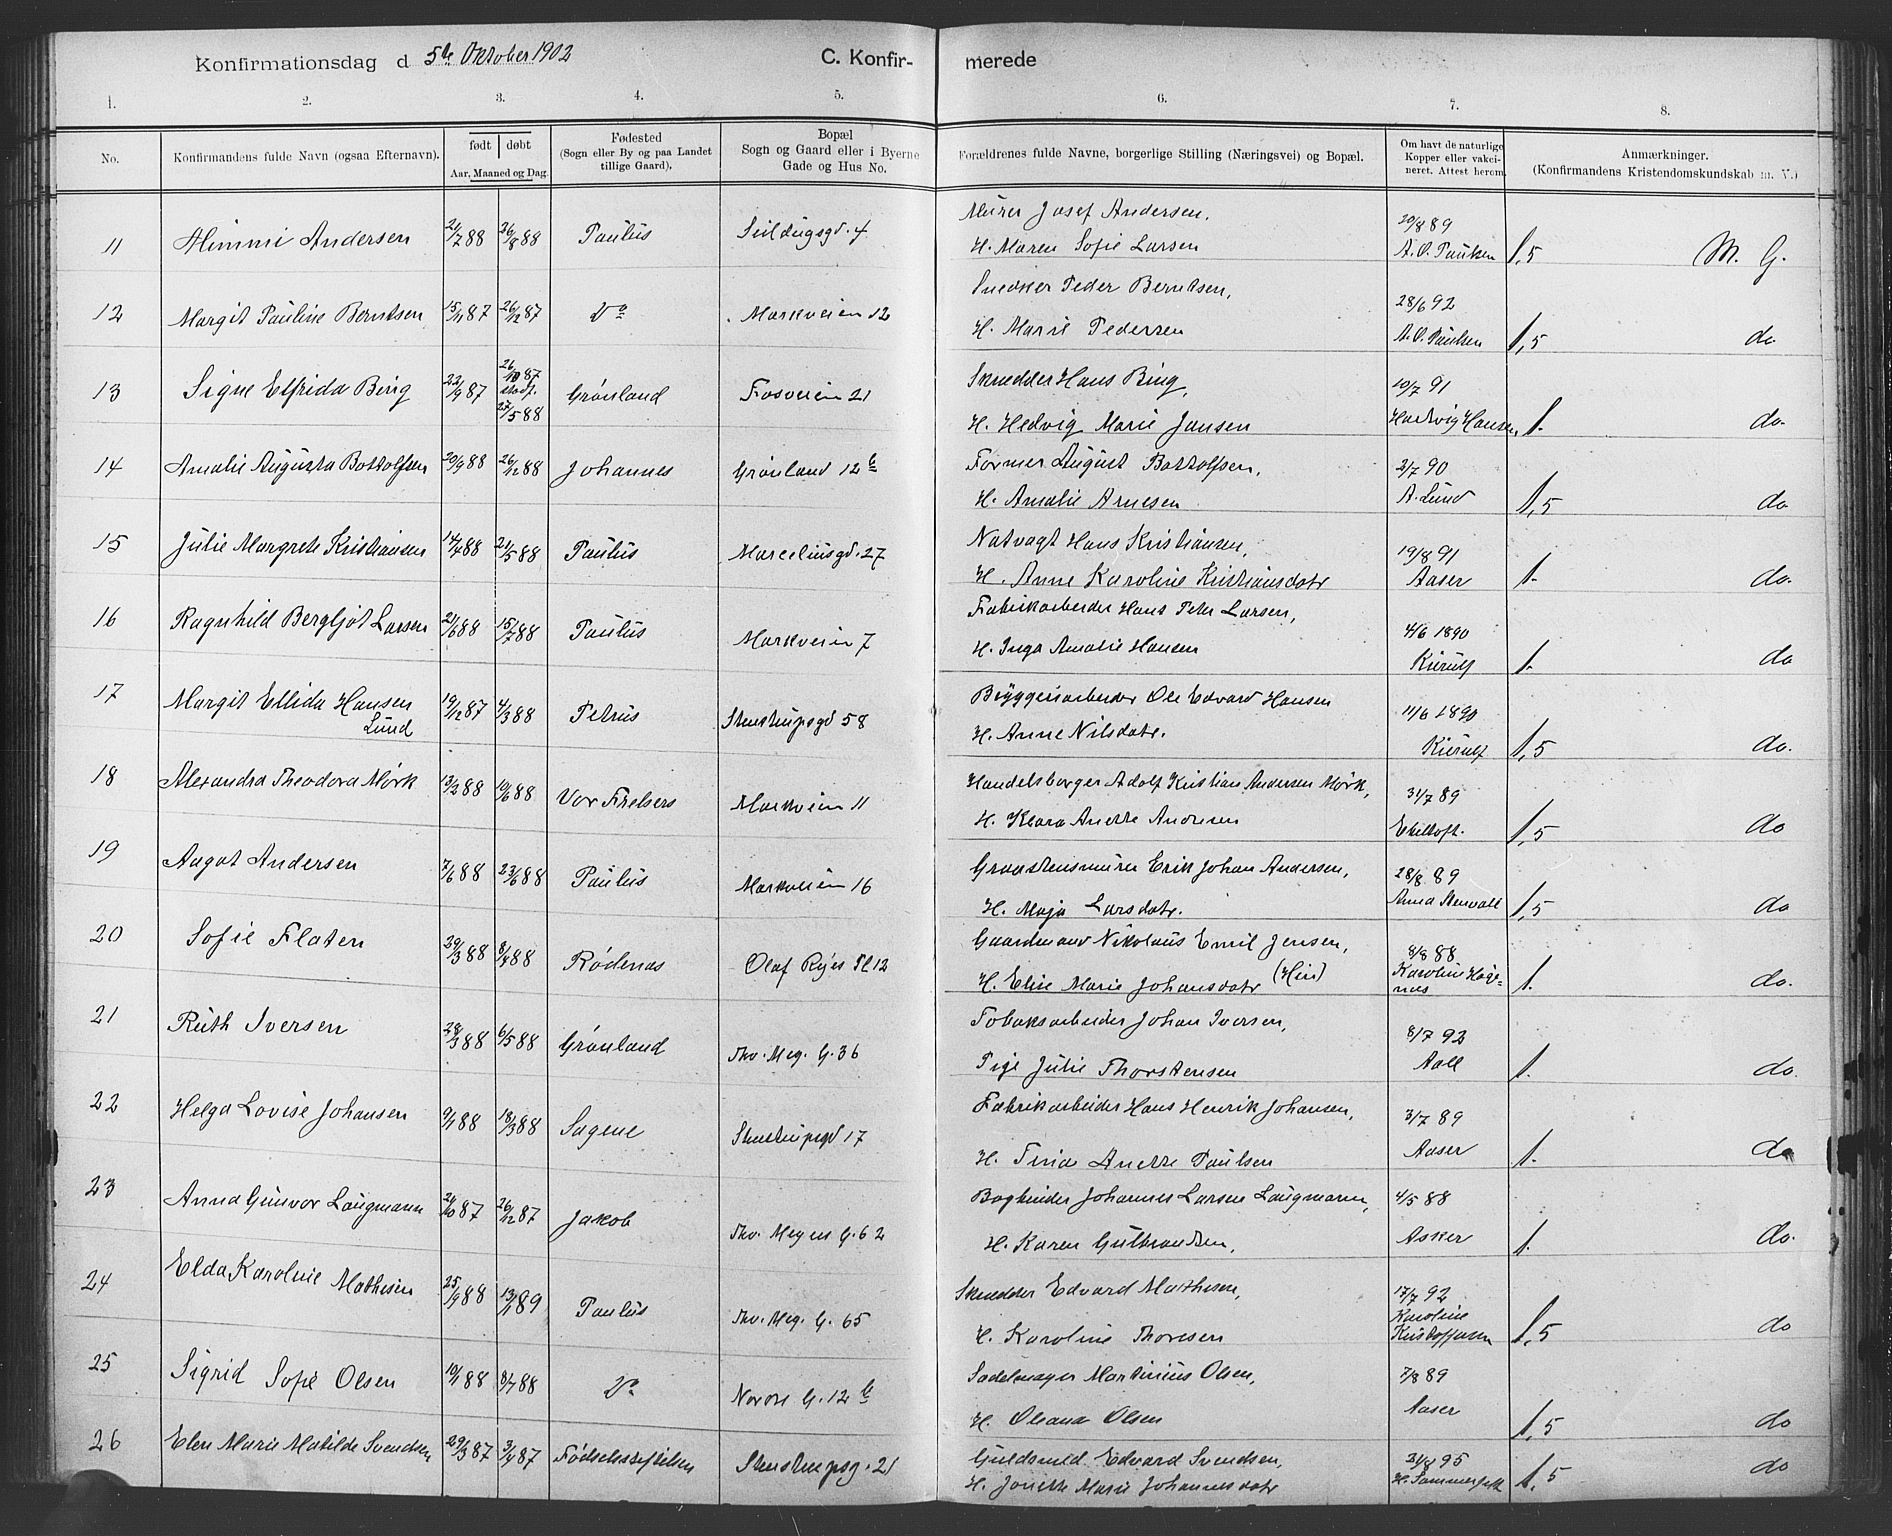 Konfirmationsdag d 5te Oktober 1902 C. Konfir- merede
1. 2. 3. 4. 5. 6. 7. 8.
No. Konfirmandens fulde Navn (ogsaa Efternavn). født døbt Aar, Maaned og Dag. Fødested (Sogn eller By og paa Landet tillige Gaard). Bopæl Sogn og Gaard eller i Byerne Gade og Hus No. Forældrenes fulde Navne, borgerlige Stilling (Næringsvei) og Bopæl. Om havt de naturlige Kopper eller vakcineret. Attest herom. Anmærkninger. (Konfirmandens Kristendomskundskab m. V.)
11 Himmi Andersen 21/7 88 26/8 88 Paulus Seildugsgd. 4 Murer Josef Andersen, 20/8 89
H. Maren Sofie Larsen A. O. Paulsen 1,5 M. G.
12 Margit Pauline Berntsen 15/11 87 26/12 87 Do Markveien 12 Snedker Peder Berntsen, 28/6 92
H. Marie Pedersen A. O. Paulsen 1,5 do
13 Signe Elfrida Bing 22/9 87 26/10 87 stadf. 27/5 88 Grønland Fosveien 21 Skrædder Hans Bing, 10/7 91
H. Hedvig Marie Jansen Hartvig Hansen 1. do.
14 Amalie Augusta Bottolfsen 20/9 88 26/12 88 Johannes Grønland 12 b Former August Bottolfsen, 2/7 90
H. Amalie Arnesen A. Lund 1,5 do
15 Julie Margrete Kristiansen 14/4 88 21/5 88 Paulus Marceliusgd. 27 Natvagt Hans Kristiansen, 19/8 91
H. Anne Karoline Kristiansdatr Aaser 1. do.
16 Ragnhild Bergljot Larsen 21/6 88 15/7 88 Paulus Markveien 7 Fabrikarbeider Hans Peter Larsen, 4/6 1890
H. Inga Amalie Hansen Kierulf 1. do
17 Margit Ellida Hansen Lund 19/12 87 4/3 88 Petrus Stenstrupsgd 58 Bryggeriarbeider Ole Edvard Hansen 11/6 1890
H. Anne Nilsdatr. Kierulf 1,5 do.
18 Alexandra Theodora Mørk 13/2 88 10/6 88 Vor Frelsers Markveien 11 Handelsborger Adolf Kristian Andersen Mørk, 31/7 89
H. Klara Anette Andresen Ebeltoft. 1,5 do
19 Aagot Andersen 7/6 88 23/6 88 Paulus Markveien 16 Graastensmurer Erik Johan Andersen, 28/8 89
H. Maja Larsdatr. Anna Stenvall 1,5 do
20 Sofie Flaten 29/3 88 8/4 88 Rødenæs Olaf Ryes Pl 12 Gaardmand Nikolaus Emil Jensen, 8/8 88
H. Elise Marie Johansdatr (Hin) Karoline 1. do.
21 Ruth Iversen 28/3 88 6/5 88 Grønland Thv. Mey. G. 36 Tobaksarbeider Johan Iversen, 8/7 92
Pige Julie Thorstensen Aall 1. do.
22 Helga Lovise Johansen 9/1 88 18/3 88 Sagene Stenstrupsgd 17 Fabrikarbeider Hans Henrik Johansen, 3/7 89
H. Tina Anette Paulsen Aaser 1. do
23 Anna Gunvor Laugmann 24/10 87 26/12 87 Jakob Thv. Meyers G. 62 Bogbinder Johannes Larsen Laugmann, 4/5 88
H. Karen Gulbrandsen, Asker 1. do.
24 Elda Karoline Mathisen 25/9 88 13/1 89 Paulus Thv. Mey. G. 65 Skrædder Edvard Mathisen, 17/7 92
H. Karoline Thoresen Karoline Kristoffersen 1,5 do
25 Sigrid Sofie Olsen 10/1 88 8/7 88 Do Nordre G. 12 b Sadelmager Martinius Olsen, 7/8 89
H. Oleana Olsen Aaser 1,5 do
26 Elen Marie Matilde Svendsen 29/3 87 3/4 87 Fødselsstiftelsen Stenstrupsg. 21 Guldsmed Edvard Svendsen, 31/8 95
H. Jonette Marie Johannesdatr H. Sommerfelt 1,5 do